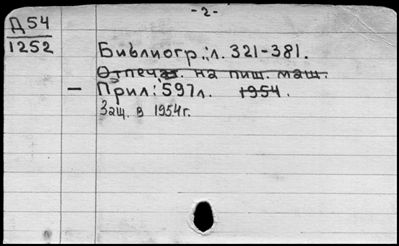 -2-
Д54
1252
Библиогр.: л. 321-381.
Отпечат. на пиш. маш.
— Прил: 597 л. 1954.
Защ. в 1954 г.